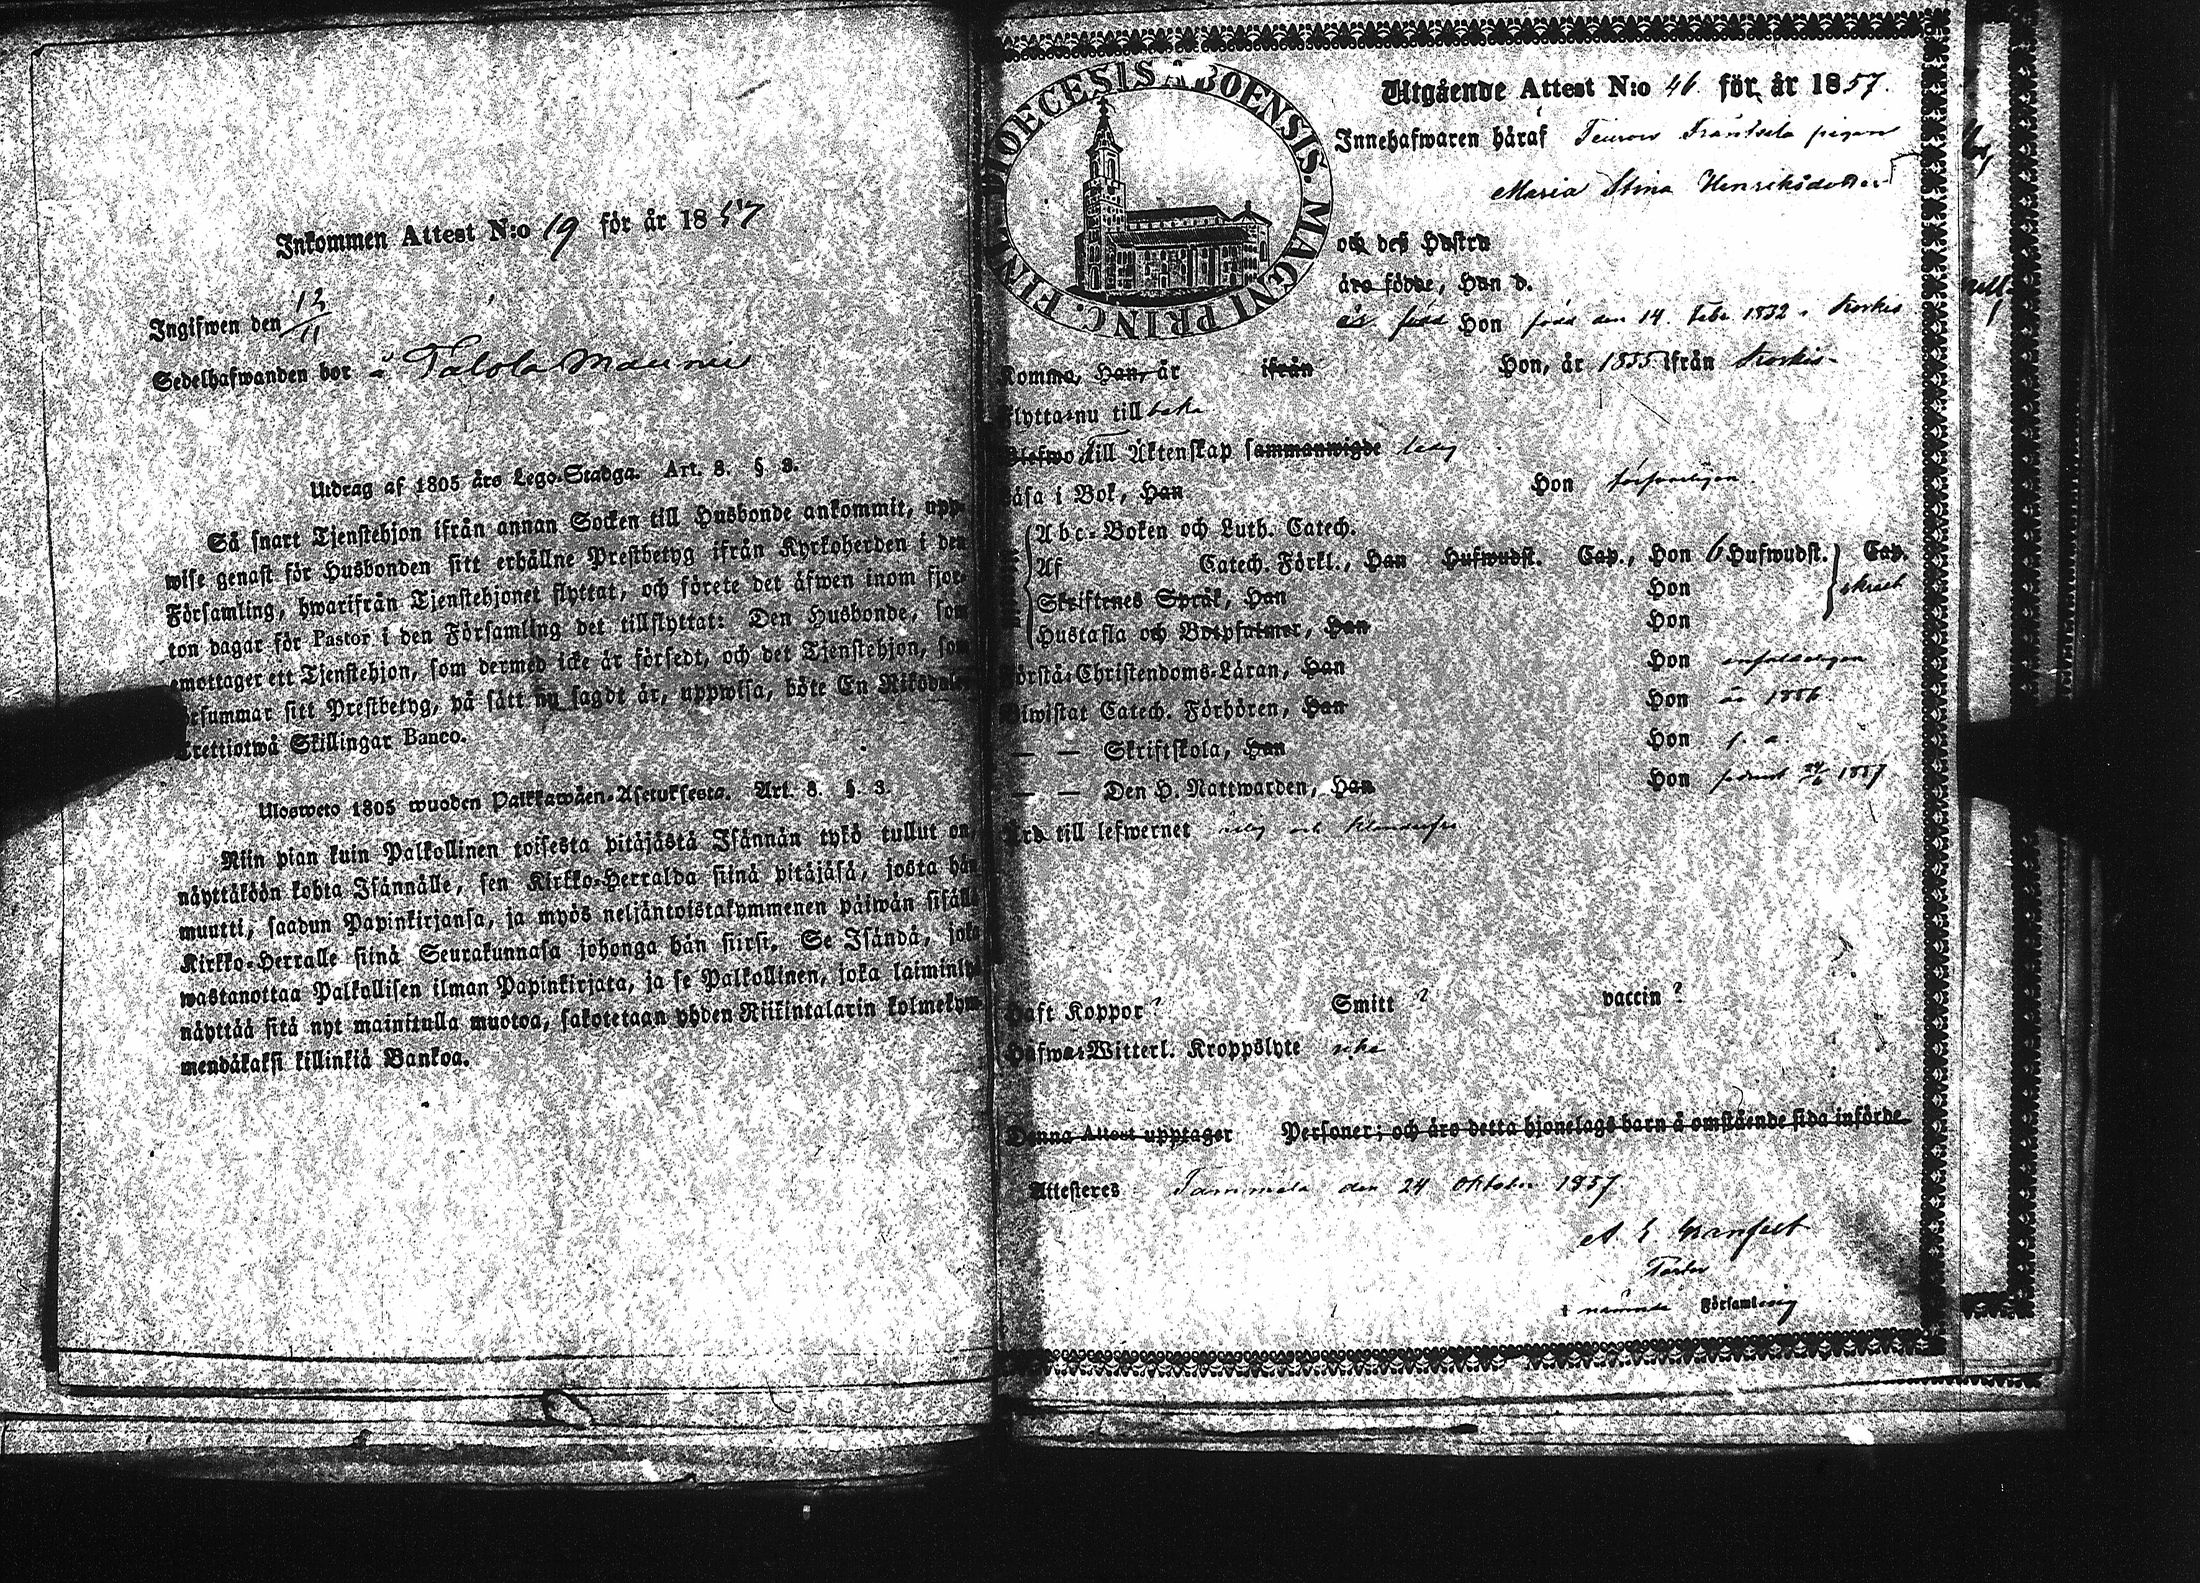 Inkommen Attest N:o 19 för år 1857
Ingifwen den 12/11
Sedelhafwanden bor å Talola Maunu
Utdrag af 1805 års Lego-Stadga. Art. 8. § 3.
Så snart Tjenstehjon ifrån annan Socken till Husbonde ankommit, upp-
wise genast för Husbonden sitt erhållne Prestbetyg ifrån Kyrkoherden i den
Församling, hwarifrån Tjenstehjonet flyttat, och förete det äfwen inom fjor-
ton dagar för Pastor i den Församling det tillflyttat: Den Husbonde, som
emottager ett Tjenstehjon, som dermed icke är försedt, och det Tjenstehjon, som
försummar sitt Prestbetyg, på sätt nu sagdt är, uppwisa, böte En Riksdaler
Trettiotwå Skillingar Banco.
Ulosweto 1805 wuoden Palkkawäen-Asetuksesta. Art. 8. §. 3.
Niin pian kuin Palkollinen toisesta pitäjästä Isännän tykö tullut on,
näyttäköön kohta Isännälle, sen Kirkko-Herralda siinä pitäjäsä, josta hän
muutti, saadun Papinkirjansa, ja myös neljäntoistakymmenen päiwän sisällä
Kirkko-Herralle siinä Seurakunnasa johonga hän siirsi. Se Isändä, joka
wastanottaa Palkollisen ilman Papinkirjata, ja se Palkollinen, joka laiminlyö
näyttää sitä nyt mainitulla muotoa, sakotetaan yhden Riikintalarin kolmekym-
mendäkaksi killinkiä Bankoa.
DIOECESIS ÅBOENSIS. MAGNI PRINC. FINL.
Utgående Attest N:o 46 för år 1857.
Innehafwaren häraf pigan
Maria Stina Henriksdotter
och deß Hustru
äro födde, Han d.
är född Hon född den 14 Febr. 1832 i Koskis
Komma, Han, år ifrån Hon, år 1855 ifrån Koskis
Flytta nu till baka
Blefwo till Äktenskap sammanwigde ledig
Läsa i Bok, Han Hon försvarligen
Abc-Boken och Luth. Catech.
Af Catech. Förkl., Han Hufwudst. Cap., Hon 6 Hufwudst. Cap.
Skriftenes Språk, Han Hon
Hustafla och Botpsalmer, Han Hon
Förstå Christendoms-Läran, Han Hon enfaldeligen
Biwistat Catech. Förhören, Han Hon år 1856.
— — Skriftskola, Han Hon
— — Den H. Nattwarden, Han Hon 1857
Äro till lefwernet
Haft Koppor? Smitt? vaccin?
Hafwa Witterl. Kroppslyte icke
Denna Attest upptager Personer; och äro detta hjonelags barn å omstående sida införde
Attesteres Tammela den 24 Oktober 1857
A E Granfelt
Pastor
i nämnde Församling